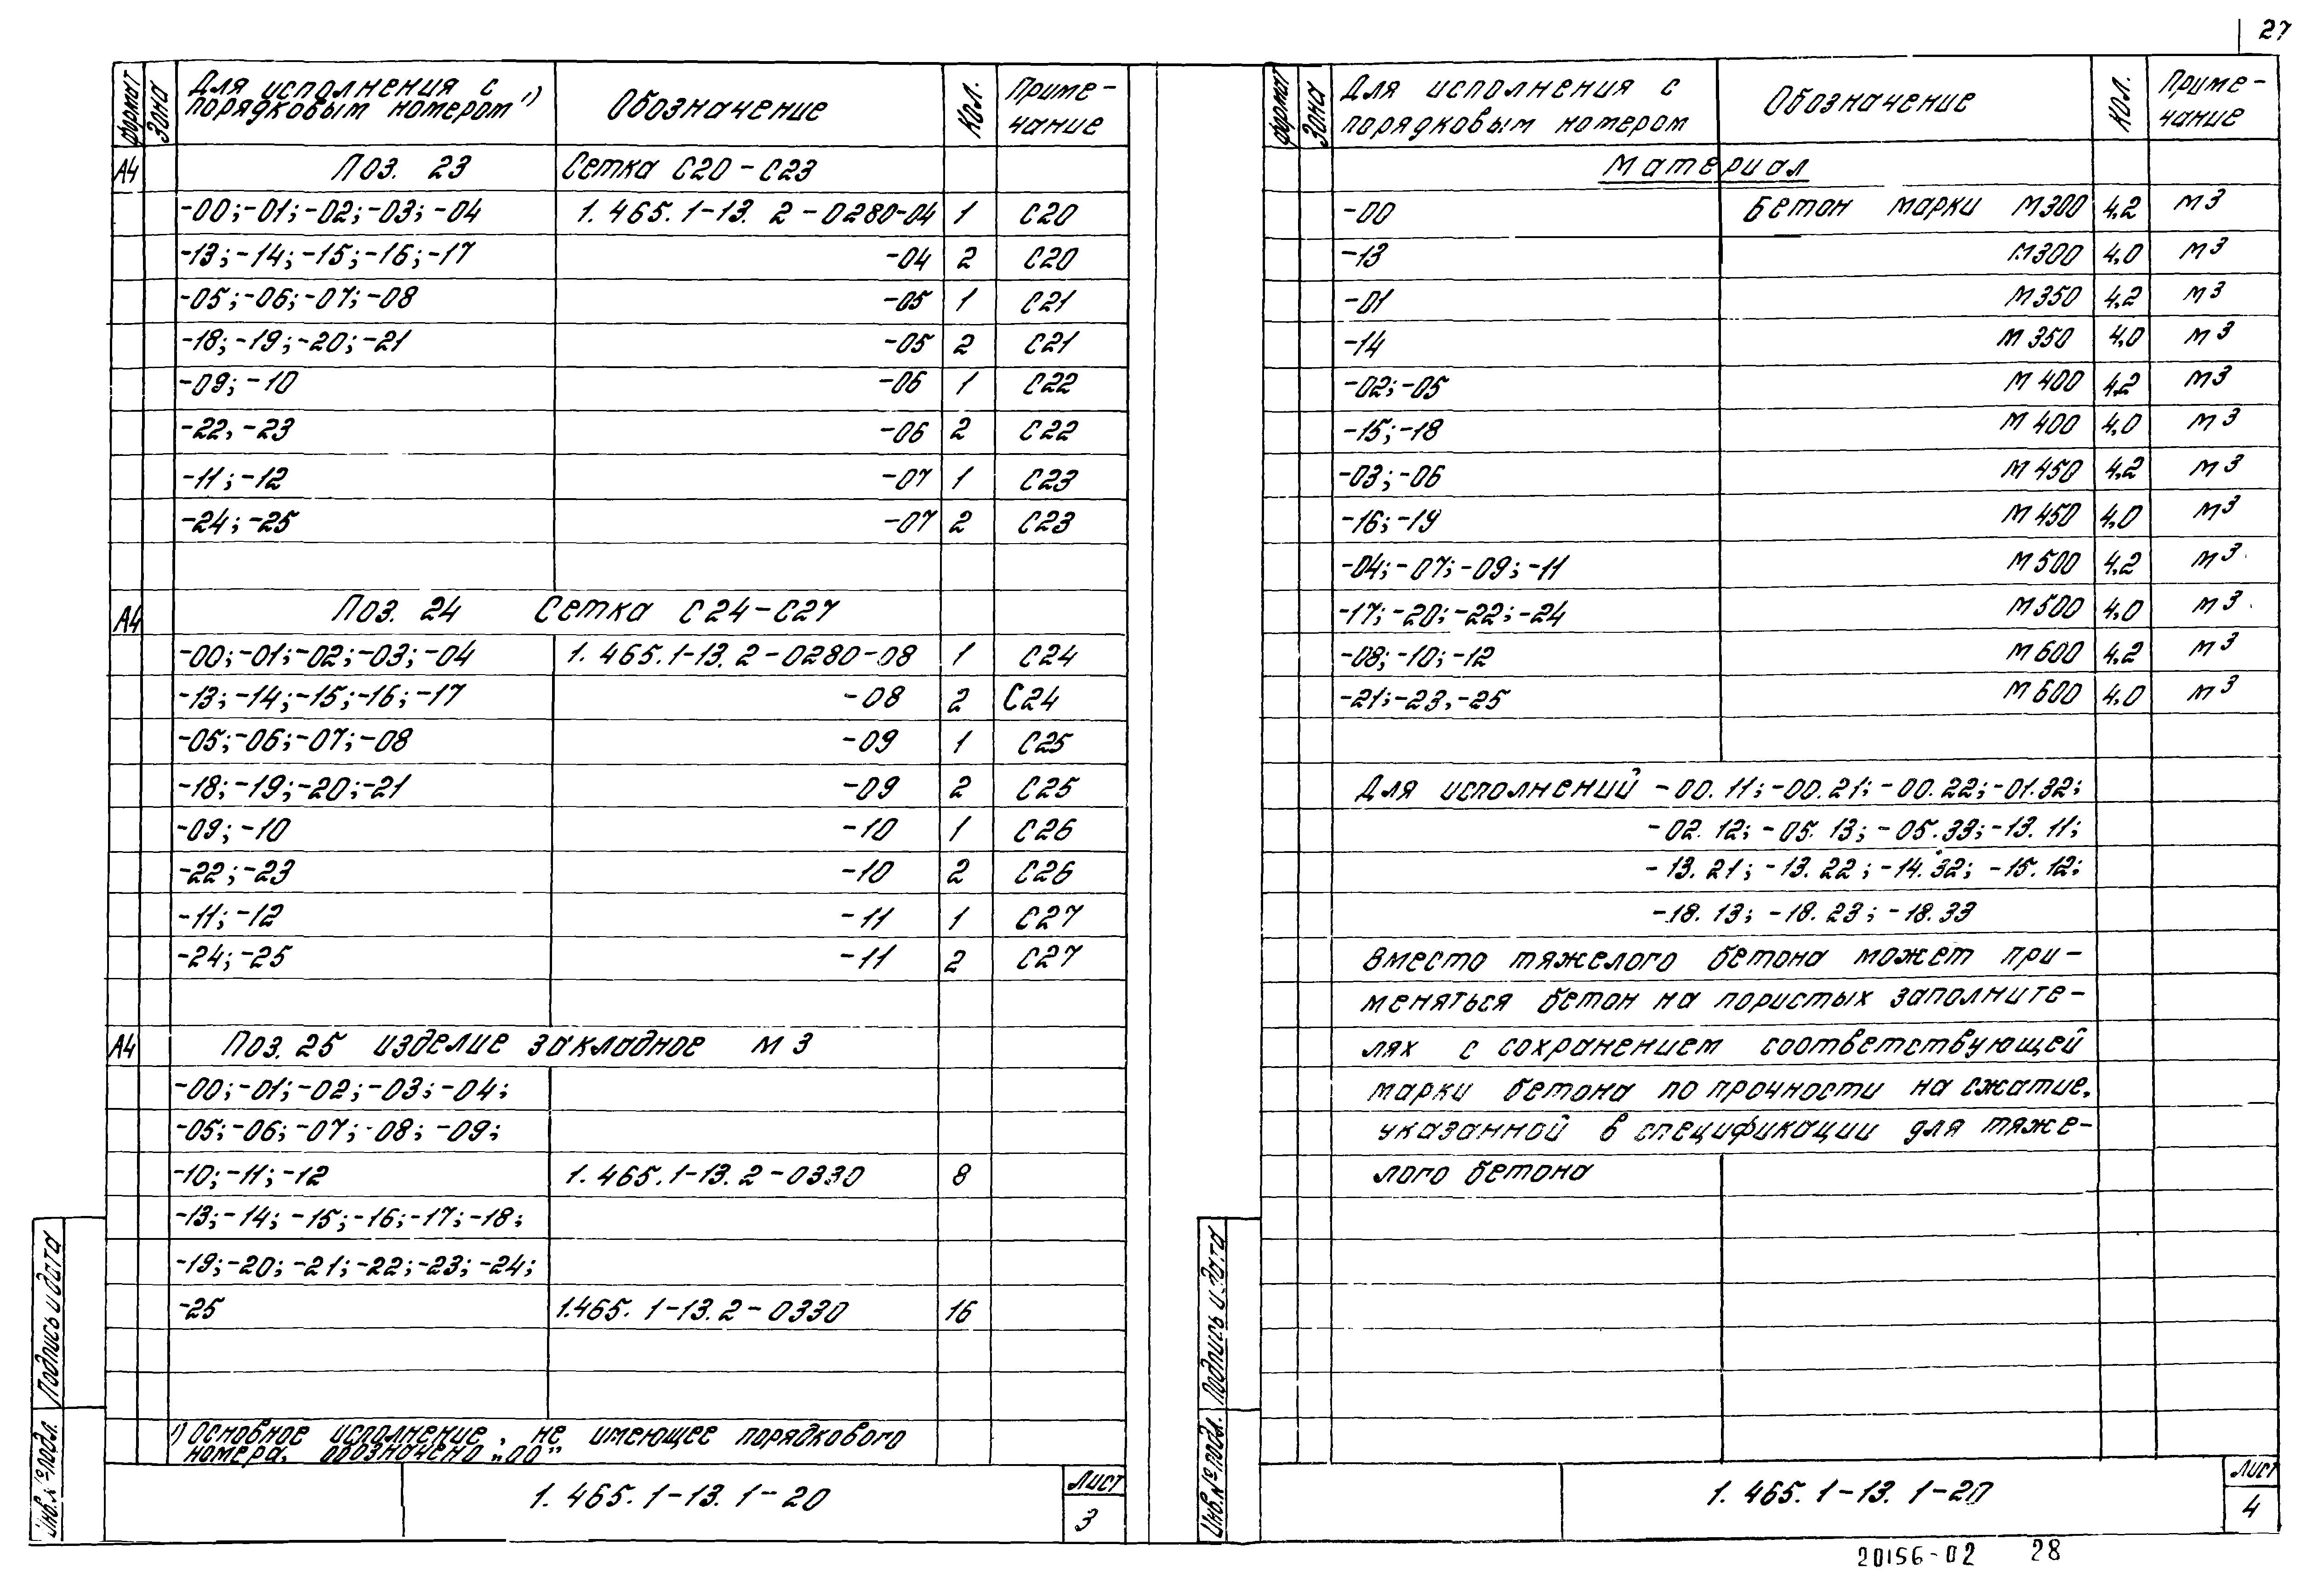 27
формат
Зона
Для исполнения с порядковым номером ¹⁾
Обозначение
Кол.
Приме-
чание
А4 Поз. 23 Сетка С20-С23
-00;-01;-02;-03;-04 1.465.1-13.2-0280-04 1 С20
-13;-14;-15;-16;-17 -04 2 С20
-05;-06;-07;-08 -05 1 С21
-18;-19;-20;-21 -05 2 С21
-09;-10 -06 1 С22
-22,-23 -06 2 С22
-11;-12 -07 1 С23
-24;-25 -07 2 С23
А4 Поз. 24 Сетка С24-С27
-00;-01;-02;-03;-04 1.465.1-13.2-0280-08 1 С24
-13;-14;-15;-16;-17 -08 2 С24
-05;-06;-07;-08 -09 1 С25
-18;-19;-20;-21 -09 2 С25
-09;-10 -10 1 С26
-22;-23 -10 2 С26
-11;-12 -11 1 С27
-24;-25 -11 2 С27
А4 Поз. 25 изделие закладное М3
-00;-01;-02;-03;-04;
-05;-06;-07;-08;-09;
-10;-11;-12 1.465.1-13.2-0330 8
-13;-14;-15;-16;-17;-18;
-19;-20;-21;-22;-23;-24;
-25 1.465.1-13.2-0330 16
¹⁾ Основное исполнение, не имеющее порядкового
номера, обозначено „00"
1.465.1-13.1-20
Лист
3
Инв.№подл. Подпись и дата
формат
Зона
Для исполнения с
порядковым номером
Обозначение
Кол.
Приме-
чание
Материал
-00 Бетон марки М300 4,2 м3
-13 М300 4,0 м3
-01 М350 4,2 м3
-14 М350 4,0 м3
-02;-05 М400 4,2 м3
-15;-18 М400 4,0 м3
-03;-06 М450 4,2 м3
-16;-19 М450 4,0 м3
-04;-07;-09;-11 М500 4,2 м3
-17;-20;-22;-24 М500 4,0 м3
-08;-10;-12 М600 4,2 м3
-21;-23,-25 М600 4,0 м3
Для исполнений -00.11;-00.21;-00.22;-01.32;
-02.12;-05.13;-05.33;-13.11;
-13.21;-13.22;-14.32;-15.12;
-18.13;-18.23;-18.33
вместо тяжелого бетона может при-
меняться бетон на пористых заполните-
лях с сохранением соответствующей
марки бетона по прочности на сжатие,
указанной в спецификации для тяже-
лого бетона
1.465.1-13.1-20
Лист
4
Инв.№подл. Подпись и дата
20156-02 28